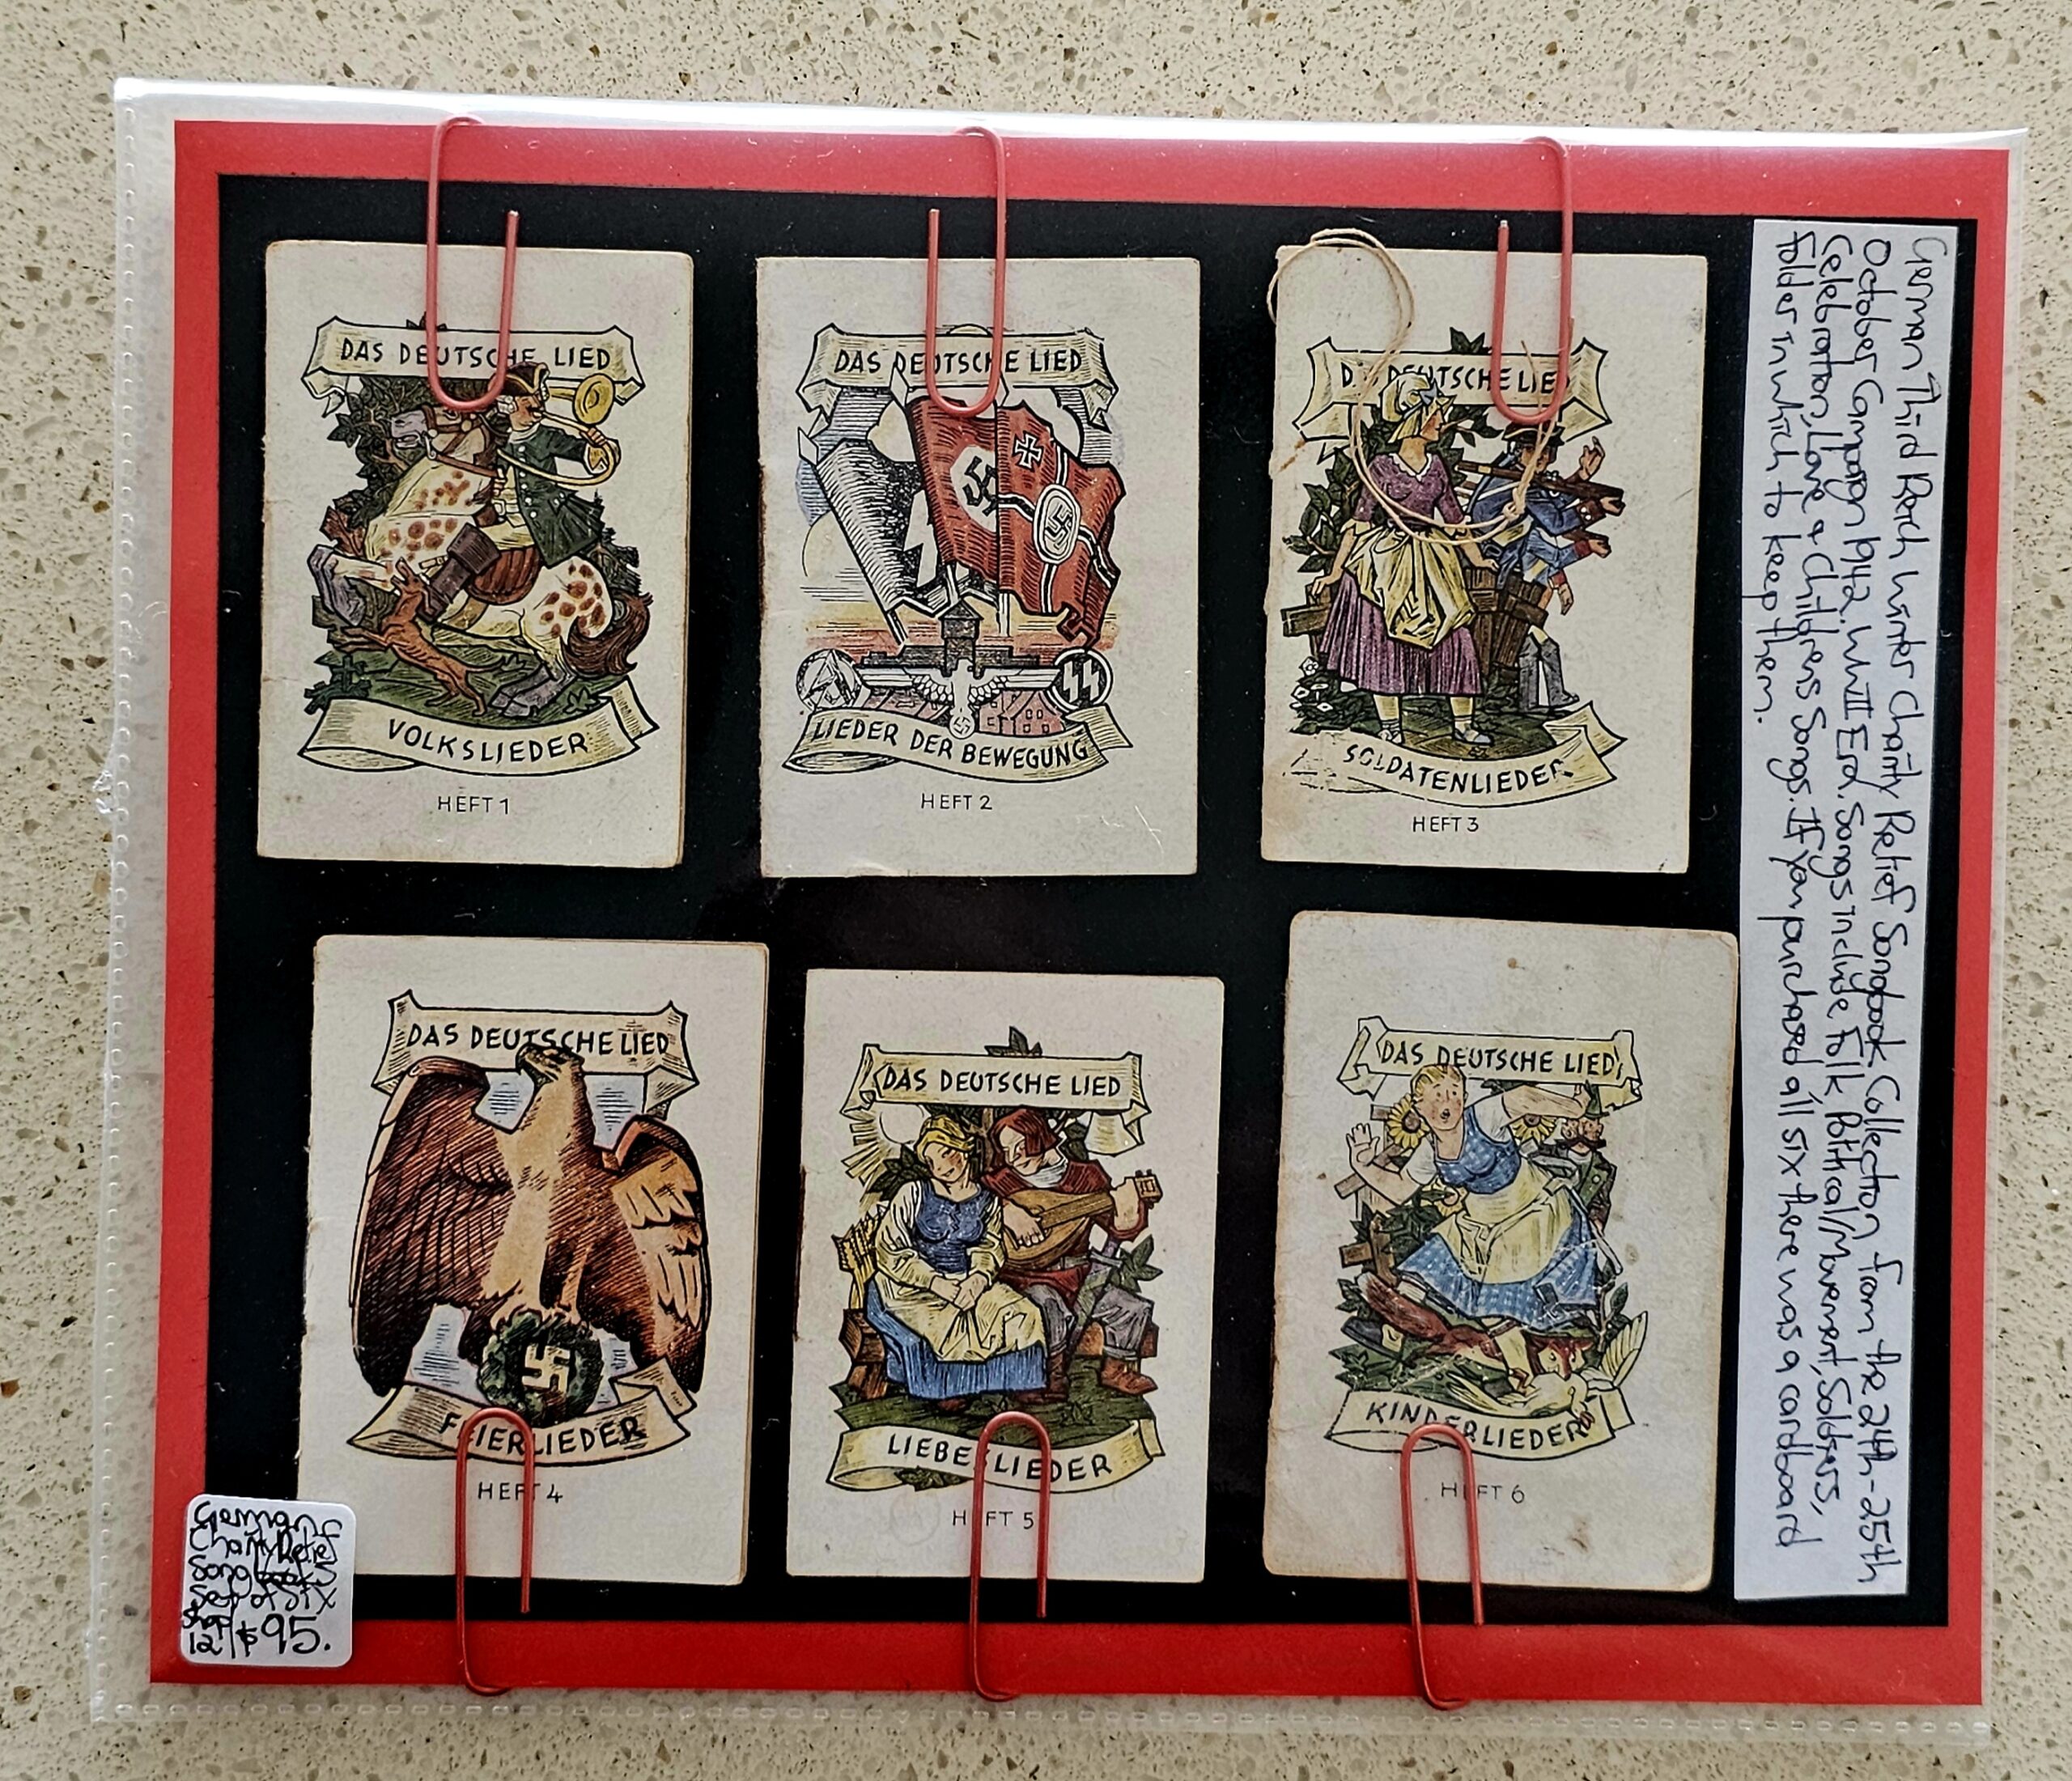 DAS DEUTSCHE LIED
VOLKSLIEDER
HEFT 1
DAS DEUTSCHE LIED
LIEDER DER BEWEGUNG
HEFT 2
DEUTSCHE LIED
SOLDATENLIEDER
HEFT 3
DAS DEUTSCHE LIED
FEIERLIEDER
HEFT 4
DAS DEUTSCHE LIED
LIEBESLIEDER
HEFT 5
DAS DEUTSCHE LIED
KINDERLIEDER
HEFT 6
German Third Reich Winter Charity Relief Songbook Collection from the 24th-25th
October Campaign 1942. WWII Era. Songs include Folk, Political/Movement, Soldiers,
Celebration, Love & Childrens Songs. If you purchased all six there was a cardboard
folder in which to keep them.
German
Charity Relief
Song books
Set of Six
Shop
12 $95.